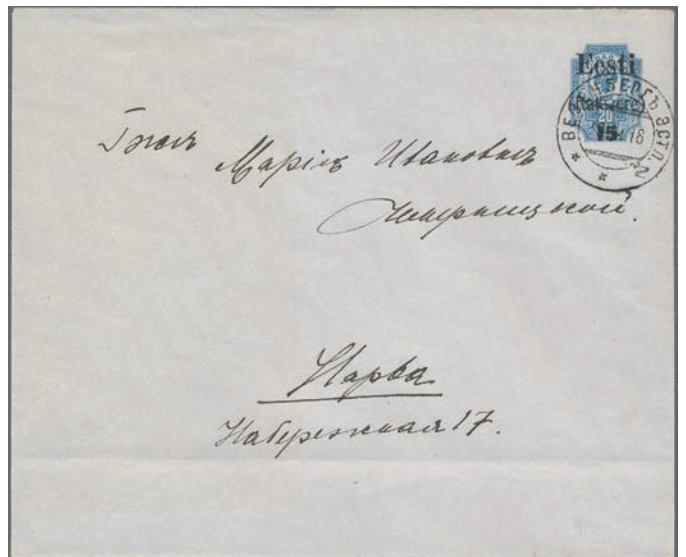 Eesti
(Rakwere)
20
15
ВЕЗЕНБЕРГЪ ЭСТЛ.
18
Г-жѣ
Маріѣ Ивановнѣ
Нарва
Набережная 17.